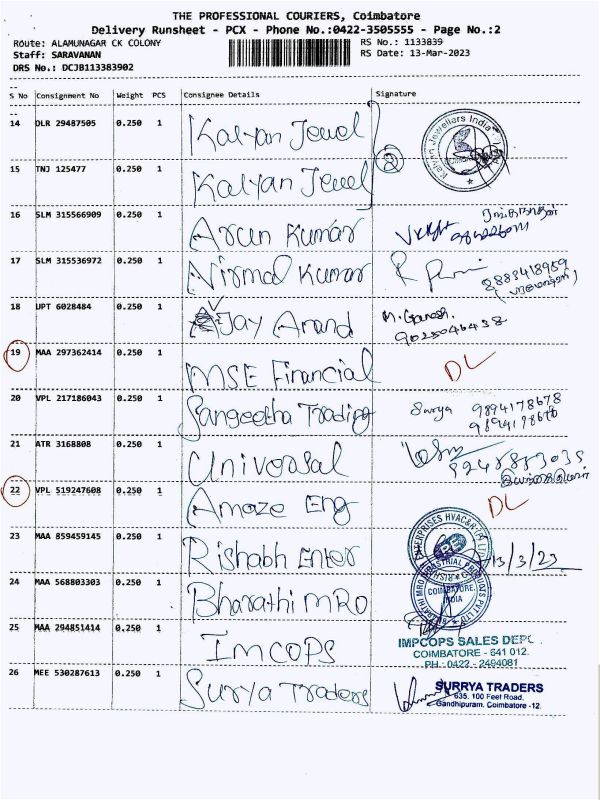 THE PROFESSIONAL COURIERS, Coimbatore
Delivery Runsheet - PCX - Phone No.:0422-3505555 - Page No.:2
Route: ALAMUNAGAR CK COLONY
RS No.: 1133839
Staff: SARAVANAN
RS Date: 13-Mar-2023
DRS No.: DCJB113383902
S No Consignment No Weight PCS Consignee Details Signature
14 DLR 29487505 0.250 1 Kalyan Jewel
Kalyan Jewellers India
15 TNJ 125477 0.250 1 Kalyan Jewel
2
16 SLM 315566909 0.250 1 Arun Kumar
17 SLM 315536972 0.250 1 Nirmal Kumar
8883418959
18 UPT 6028484 0.250 1 AJay Anand M. Ganesh.
9025046438
19 MAA 297362414 0.250 1 MSE Financial DL
20 VPL 217186043 0.250 1 Sangeetha Trading Surya 9894178678
9894178678
21 ATR 3168808 0.250 1 Universal
22 VPL 519247608 0.250 1 Amaze Eng DL
23 MAA 859459145 0.250 1 Rishabh Enter
ENTERPRISES HVAC&R
13/3/23
24 MAA 568803303 0.250 1 Bharathi MRO
COIMBATORE.
INDIA
25 MAA 294851414 0.250 1 Imcops
IMPCOPS SALES DEPO
COIMBATORE - 641 012.
PH.: 0422 - 2494081
26 MEE 530287613 0.250 1 Surya Traders
SURRYA TRADERS
635, 100 Feet Road,
Gandhipuram, Coimbatore -12.